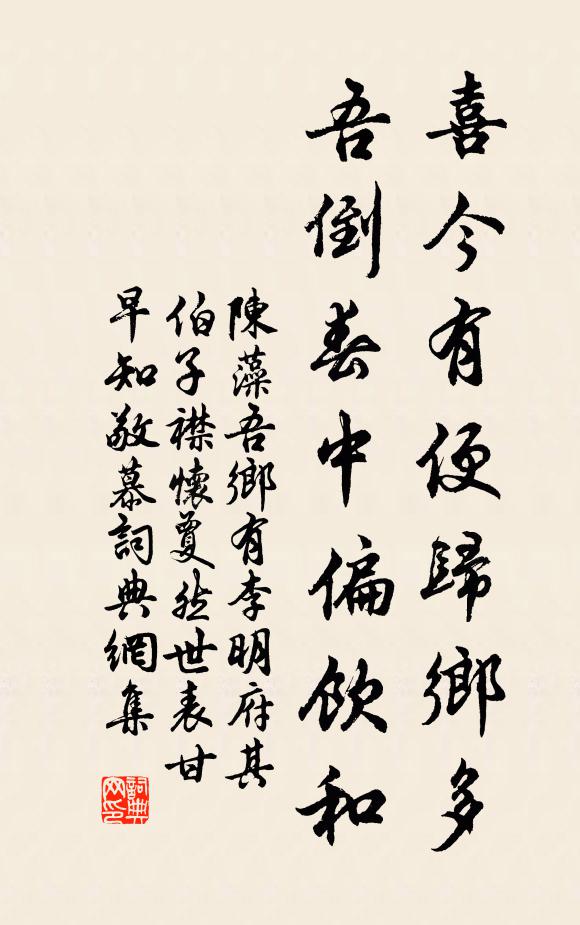 喜今有便歸鄉多
吾倒春中偏飲和
陳藻吾鄉有李明府其
伯子襟懷夐然世表甘
早知敬慕詞典網集
詞典網印